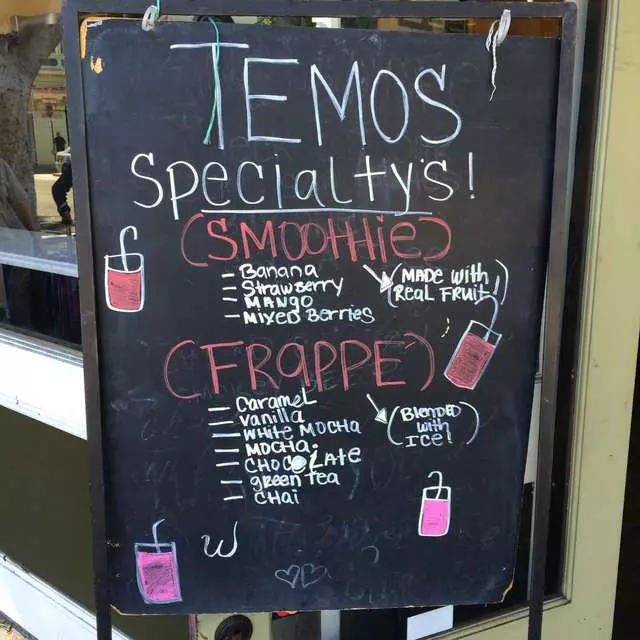 TEMOS
Specialty's!
(SMOOthie)
- Banana
- Strawberry
- MANGO
- Mixed Berries
(MADE with
Real Fruit!)
(FRAPPE)
- Caramel
- Vanilla
- White MOCHA
- MOCHA
- CHOCOLATE
- green tea
- CHAI
(Blended
with
ICE!)
W